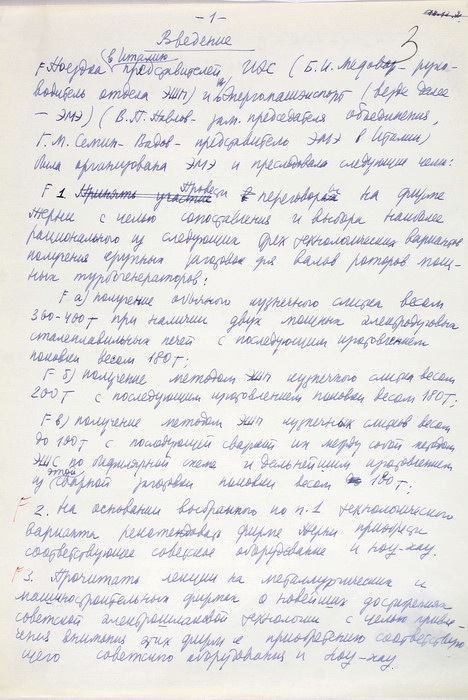 - 1 -
3
Введение
в Италию
F Поездка представителей ИЭС (Б.И. Медовар - руко-
водитель отдела ЭШП) и В/О Энергомашэкспорт (везде далее
- ЭМЭ) (В.П. Павлов - зам. председателя объединения,
Г.М. Семин-Вадов - представитель ЭМЭ в Италии)
была организована ЭМЭ и преследовала следующие цели:
F 1. Принять участие Провести переговоры на фирме
Терни с целью сопоставления и выбора наиболее
рационального из следующих трех технологических вариантов
получения крупных заготовок для валов роторов мощ-
ных турбогенераторов:
F а) получение обычного кузнечного слитка весом
360-400т при наличии двух мощных электродуговых
сталеплавильных печей с последующим изготовлением
поковки весом 180т;
F б) получение методом ЭШП кузнечного слитка весом
200т с последующим изготовлением поковки весом 180т;
F в) получение методом ЭШП кузнечных слитков весом
до 100т с последующей сваркой их между собой методом
ЭШС по бифилярной схеме и дальнейшим изготовлением
из этой сварной заготовки поковки весом 180т;
F 2. На основании выбранного по п.1 технологического
варианта рекомендовать фирме Терни приобрести
соответствующее советское оборудование и ноу-хау.
F 3. Прочитать лекции на металлургических и
машиностроительных фирмах о новейших достижениях
советской электрошлаковой технологии с целью привле-
чения внимания этих фирм к приобретению соответствую-
щего советского оборудования и ноу-хау.